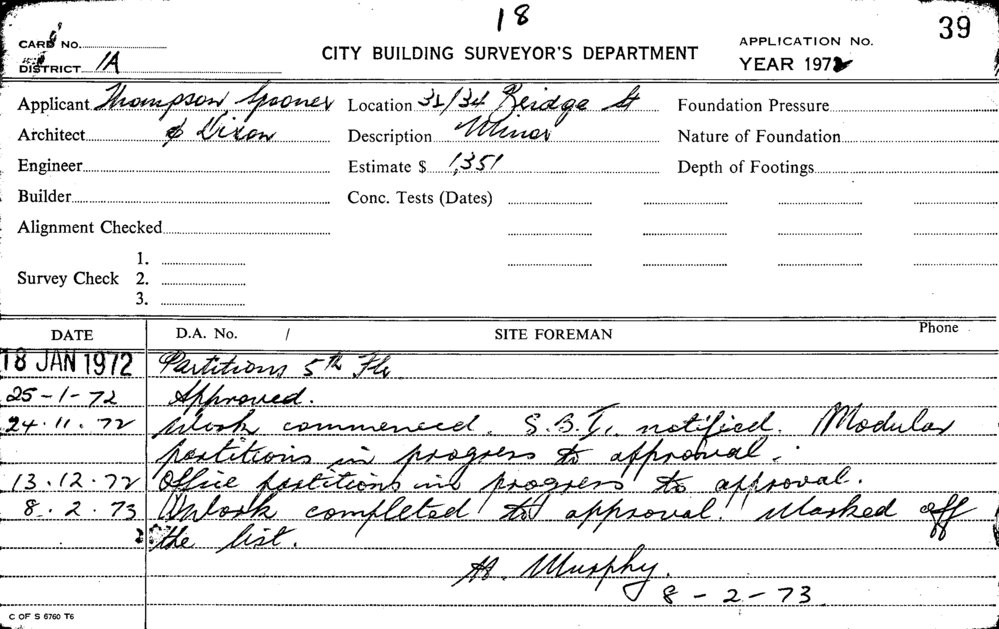 18
39
CARD NO.
CITY BUILDING SURVEYOR'S DEPARTMENT
APPLICATION No.
DISTRICT 1A
YEAR 1972
Applicant Thompson Spooner
Location 32/34 Bridge St
Foundation Pressure
Architect & Dixon
Description Minor
Nature of Foundation
Engineer
Estimate $ 1,351
Depth of Footings
Builder
Conc. Tests (Dates)
Alignment Checked
1.
Survey Check 2.
3.
DATE D.A. No. / SITE FOREMAN Phone
18 JAN 1972 Partitions 5th Flr
25-1-72 Approved.
24.11.72 Work commenced. S.B.I. notified. Modular
partitions in progress to approval.
13.12.72 Office partitions in progress to approval.
8.2.73 Work completed to approval. Marked off
the list.
H. Murphy.
8-2-73
C OF S 6760 T6